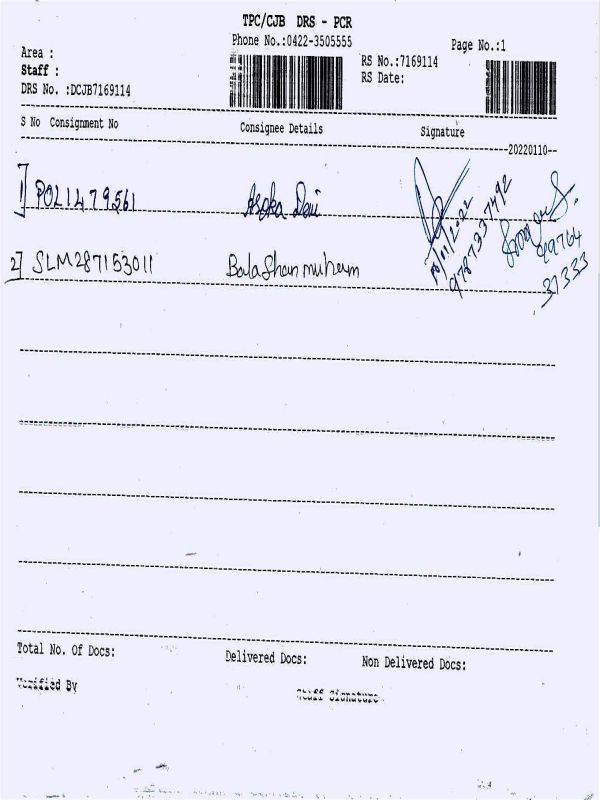 TPC/CJB DRS - PCR
Phone No.:0422-3505555
Page No.:1
Area :
Staff :
DRS No. :DCJB7169114
RS No.:7169114
RS Date:
S No Consignment No Consignee Details Signature
20220110
1] POL1479561 Asoka Devi
10/01/2022
9787337492
99764
37333
2] SLM287153011 Bala Shanmuham
Total No. Of Docs: Delivered Docs: Non Delivered Docs:
Verified By Staff Signature